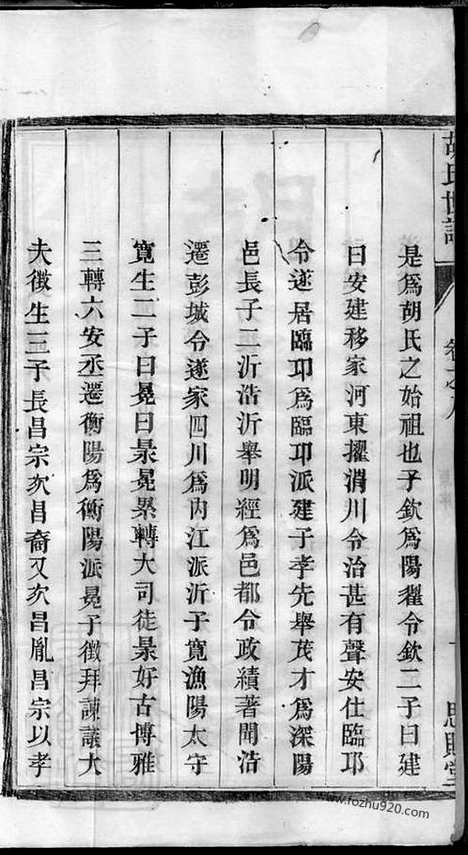 胡氏世譜
卷之八
思貽堂
是爲胡氏之始祖也子欽爲陽翟令欽二子曰建
曰安建移家河東擢渭川令治甚有聲安仕臨邛
令遂居臨邛爲臨邛派建子孝先舉茂才爲深陽
邑長子二沂浩沂舉明經爲邑都令政績著聞浩
遷彭城令遂家四川爲內江派沂子寬漁陽太守
寬生二子曰晃曰景晃累轉大司徒景好古博雅
三轉六安丞遷衡陽爲衡陽派晃子徵拜諫議大
夫徵生三子長昌宗次昌裔又次昌胤昌宗以孝
www.fozhu920.com